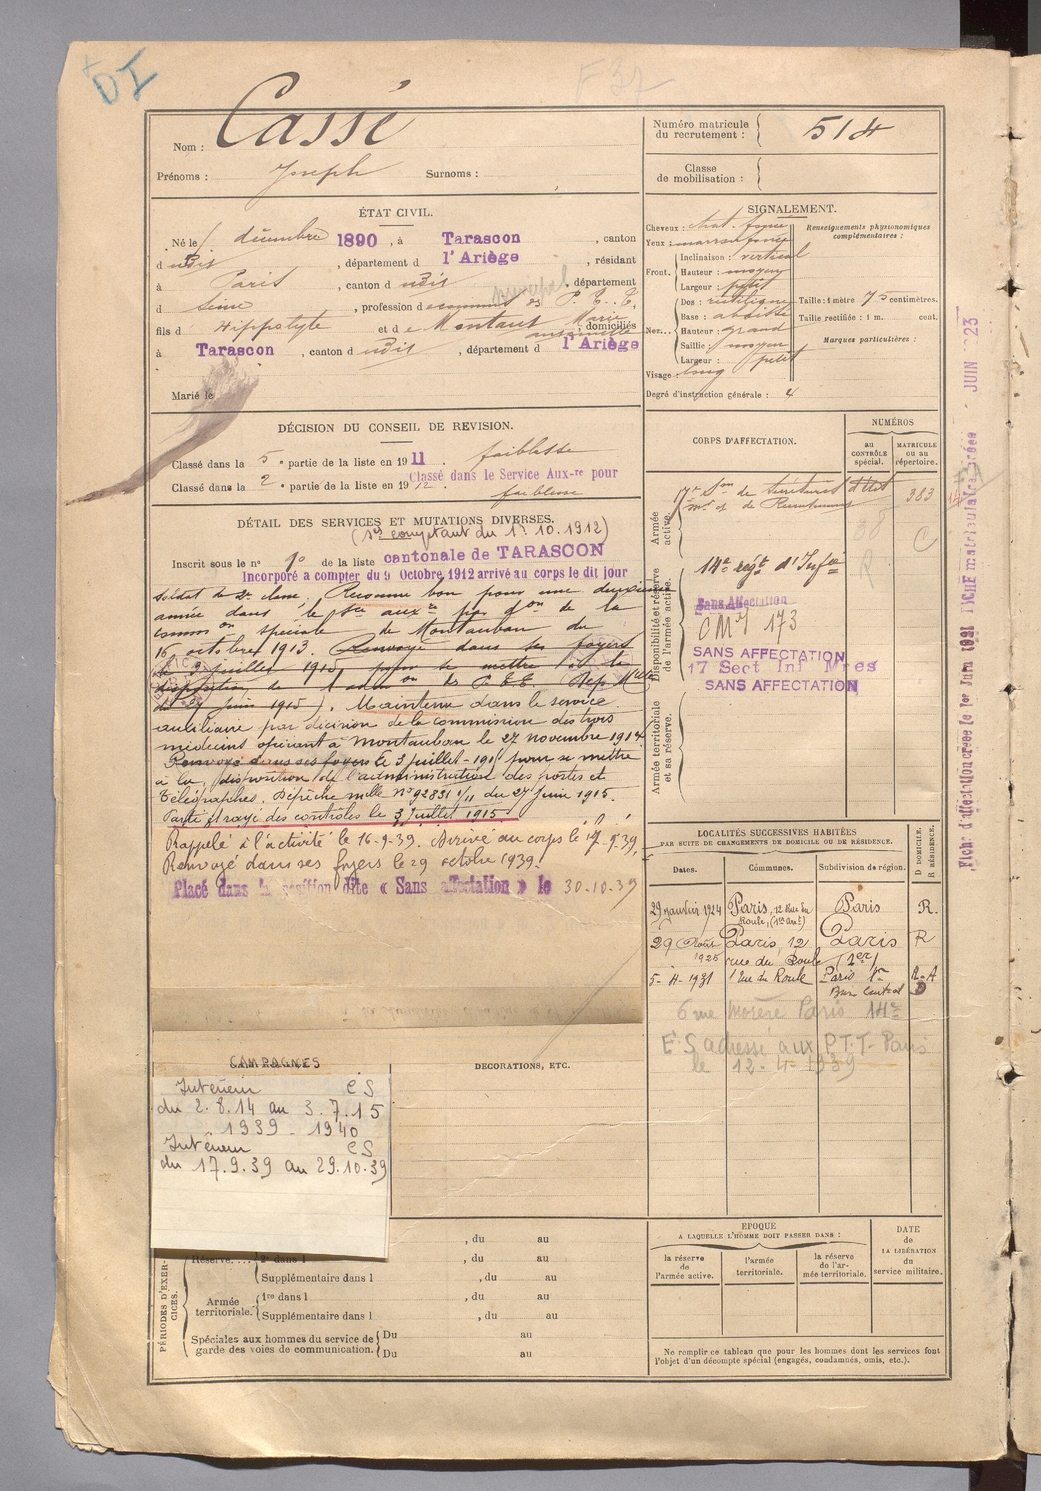 DI
F 37
Nom : Cassé
Prénoms : Joseph Surnoms :
Numéro matricule du recrutement : 514
Classe de mobilisation :
ÉTAT CIVIL.
Né le 1 décembre 1890, à Tarascon, canton
d udis, département d l'Ariège, résidant
à Paris, canton d udis, département
d Seine, profession de commis des P. T. T.
fils d Hippolyte et de Montaut Marie domiciliés
à Tarascon, canton d udis, département d l'Ariège
Marié le
SIGNALEMENT.
Cheveux : chat. foncé
Yeux : marron foncé
Front. Inclinaison : vertical
Hauteur : moyen
Largeur : petit
Nez. Dos : rectiligne
Base : abaissé
Hauteur : grand
Saillie : moyen
Largeur : petit
Visage long
Renseignements physionomiques complémentaires :
Taille : 1 mètre 75 centimètres.
Taille rectifiée : 1 m. cent.
Marques particulières :
Degré d'instruction générale : 4
DÉCISION DU CONSEIL DE REVISION.
Classé dans la 5e partie de la liste en 1911. faiblesse
Classé dans la 2e partie de la liste en 1912. Classé dans le Service Aux-re pour
faiblesse
DÉTAIL DES SERVICES ET MUTATIONS DIVERSES.
(Sce comptant du 1.10.1912)
Inscrit sous le n° 90 de la liste cantonale de TARASCON
Incorporé à compter du 9 Octobre 1912 arrivé au corps le dit jour
soldat de 2e classe. Reconnu bon pour une deuxième
année dans le sce auxre par don de la
common spéciale de Montauban du
16 octobre 1913. Renvoyé dans ses foyers
le 3 juillet 1915 pour se mettre à la
disposition de l'admon des P.T.T. Dép. Mlle
du 27 juin 1915). Maintenu dans le service
auxiliaire par décision de la commission des trois
médecins opérant à Montauban le 27 novembre 1914
Renvoyé dans ses foyers le 3 juillet 1915 pour se mettre
à la disposition de l'administration des postes et
Télégraphes. Dépêche mlle n° 92831 1/11 du 27 juin 1915.
rayé des contrôles le 3 juillet 1915.
Rappelé à l'activité le 16-9-39. Arrivé au corps le 17-9-39,
Renvoyé dans ses foyers le 29 octobre 1939.
Placé dans la position dite « Sans affectation » le 30-10-39
CORPS D'AFFECTATION.
NUMÉROS
AU CONTRÔLE spécial.
MATRICULE ou au répertoire.
Armée active.
17e Son de secrétaires d'état
mor et de Recrutement
383
C
Disponibilité et réserve de l'armée active.
14e régt d'Infie
Sans Affectation
CMI 173
SANS AFFECTATION
17 Sect Inf Mres
SANS AFFECTATION
Armée territoriale et sa réserve.
Fiche d'affectation créée le 1er Juin 1931
FICHE matriculaire créée JUIN 1923
LOCALITÉS SUCCESSIVES HABITÉES
PAR SUITE DE CHANGEMENTS DE DOMICILE OU DE RÉSIDENCE.
Dates. Communes. Subdivision de région. D DOMICILE. R RÉSIDENCE.
29 janvier 1924 Paris, 12 Rue du Roule, (1er arrt) Paris R.
29 Août 1925 Paris, 12 rue du Roule Paris (1er) R
5-4-1931 1 Rue du Roule Paris 1er Bur Central R-A D
6 rue Morère Paris 14e
E S adressé aux P.T.T. Paris
le 12-4-1939
CAMPAGNES
Intérieur CS
du 2.8.14 au 3.7.15
1939 - 1940
Intérieur CS
du 17.9.39 au 29.10.39
DECORATIONS, ETC.
PÉRIODES D'EXERCICES.
, du au
Réserve.... 2e dans l , du au
Supplémentaire dans l , du au
Armée territoriale. 1re dans l , du au
Supplémentaire dans l , du au
Spéciales aux hommes du service de garde des voies de communication. Du au
Du au
EPOQUE
A LAQUELLE L'HOMME DOIT PASSER DANS :
la réserve de l'armée active.
l'armée territoriale.
la réserve de l'armée territoriale.
DATE DE LA LIBÉRATION du service militaire.
Ne remplir ce tableau que pour les hommes dont les services font
l'objet d'un décompte spécial (engagés, condamnés, omis, etc.).